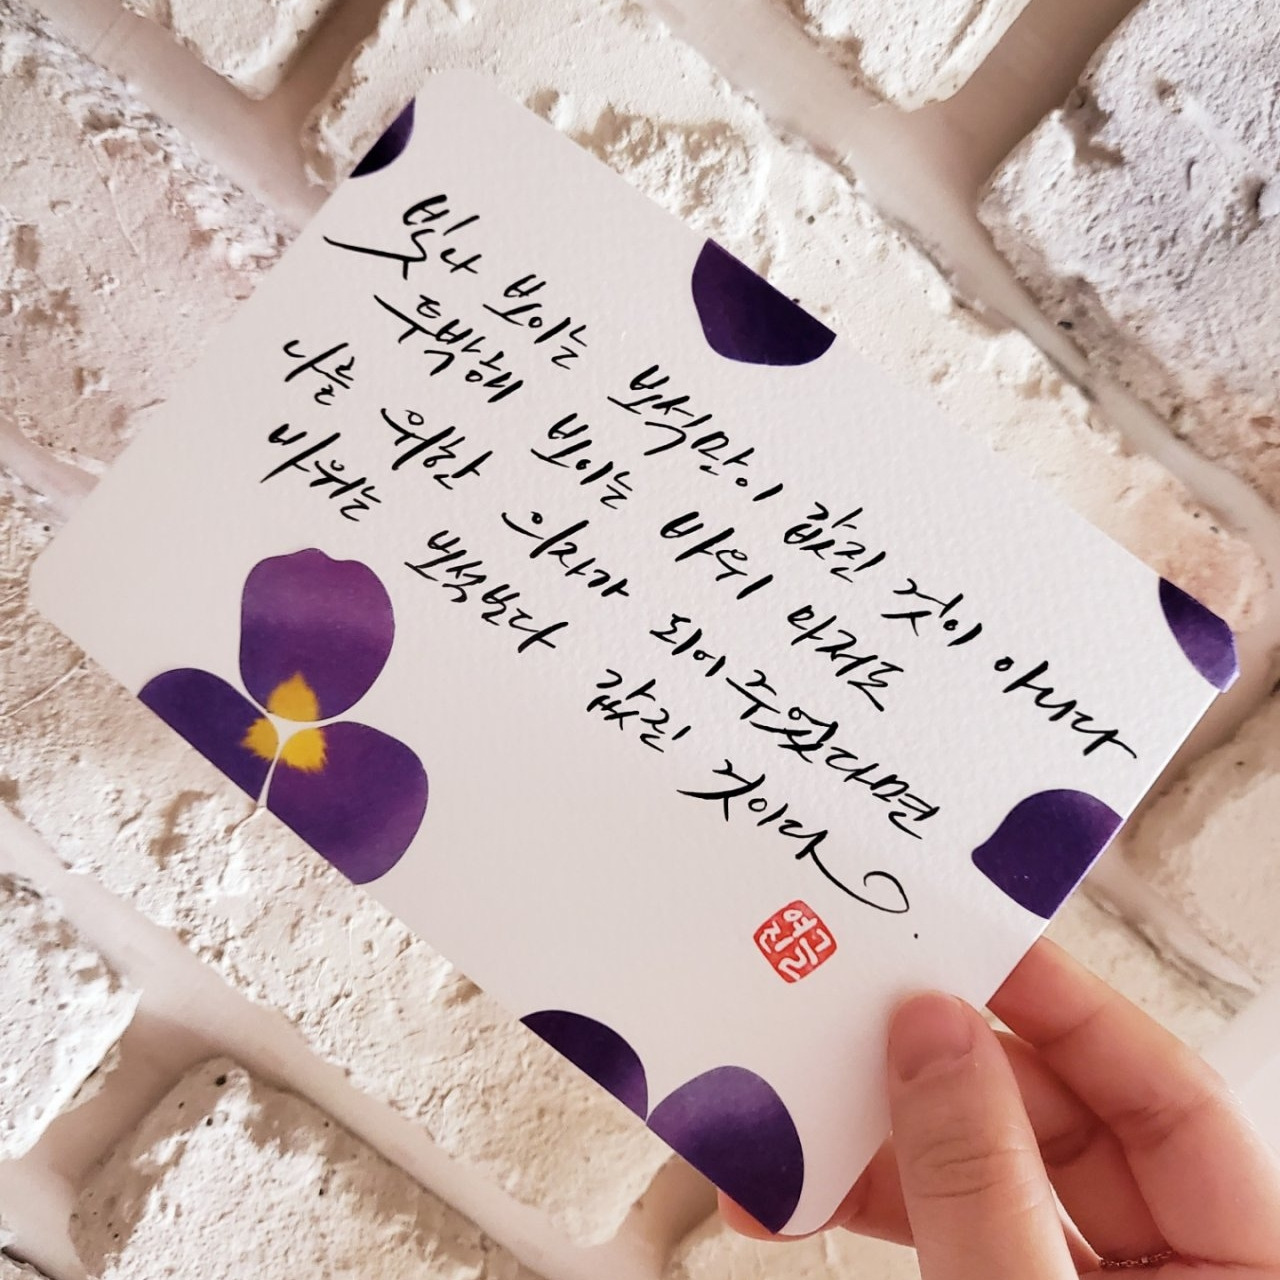 빛나 보이는 보석만이 값진 것이 아니라
투박해 보이는 바위 마저도
나를 위한 의자가 되어 주었다면
바위는 보석보다 값진 것이다.